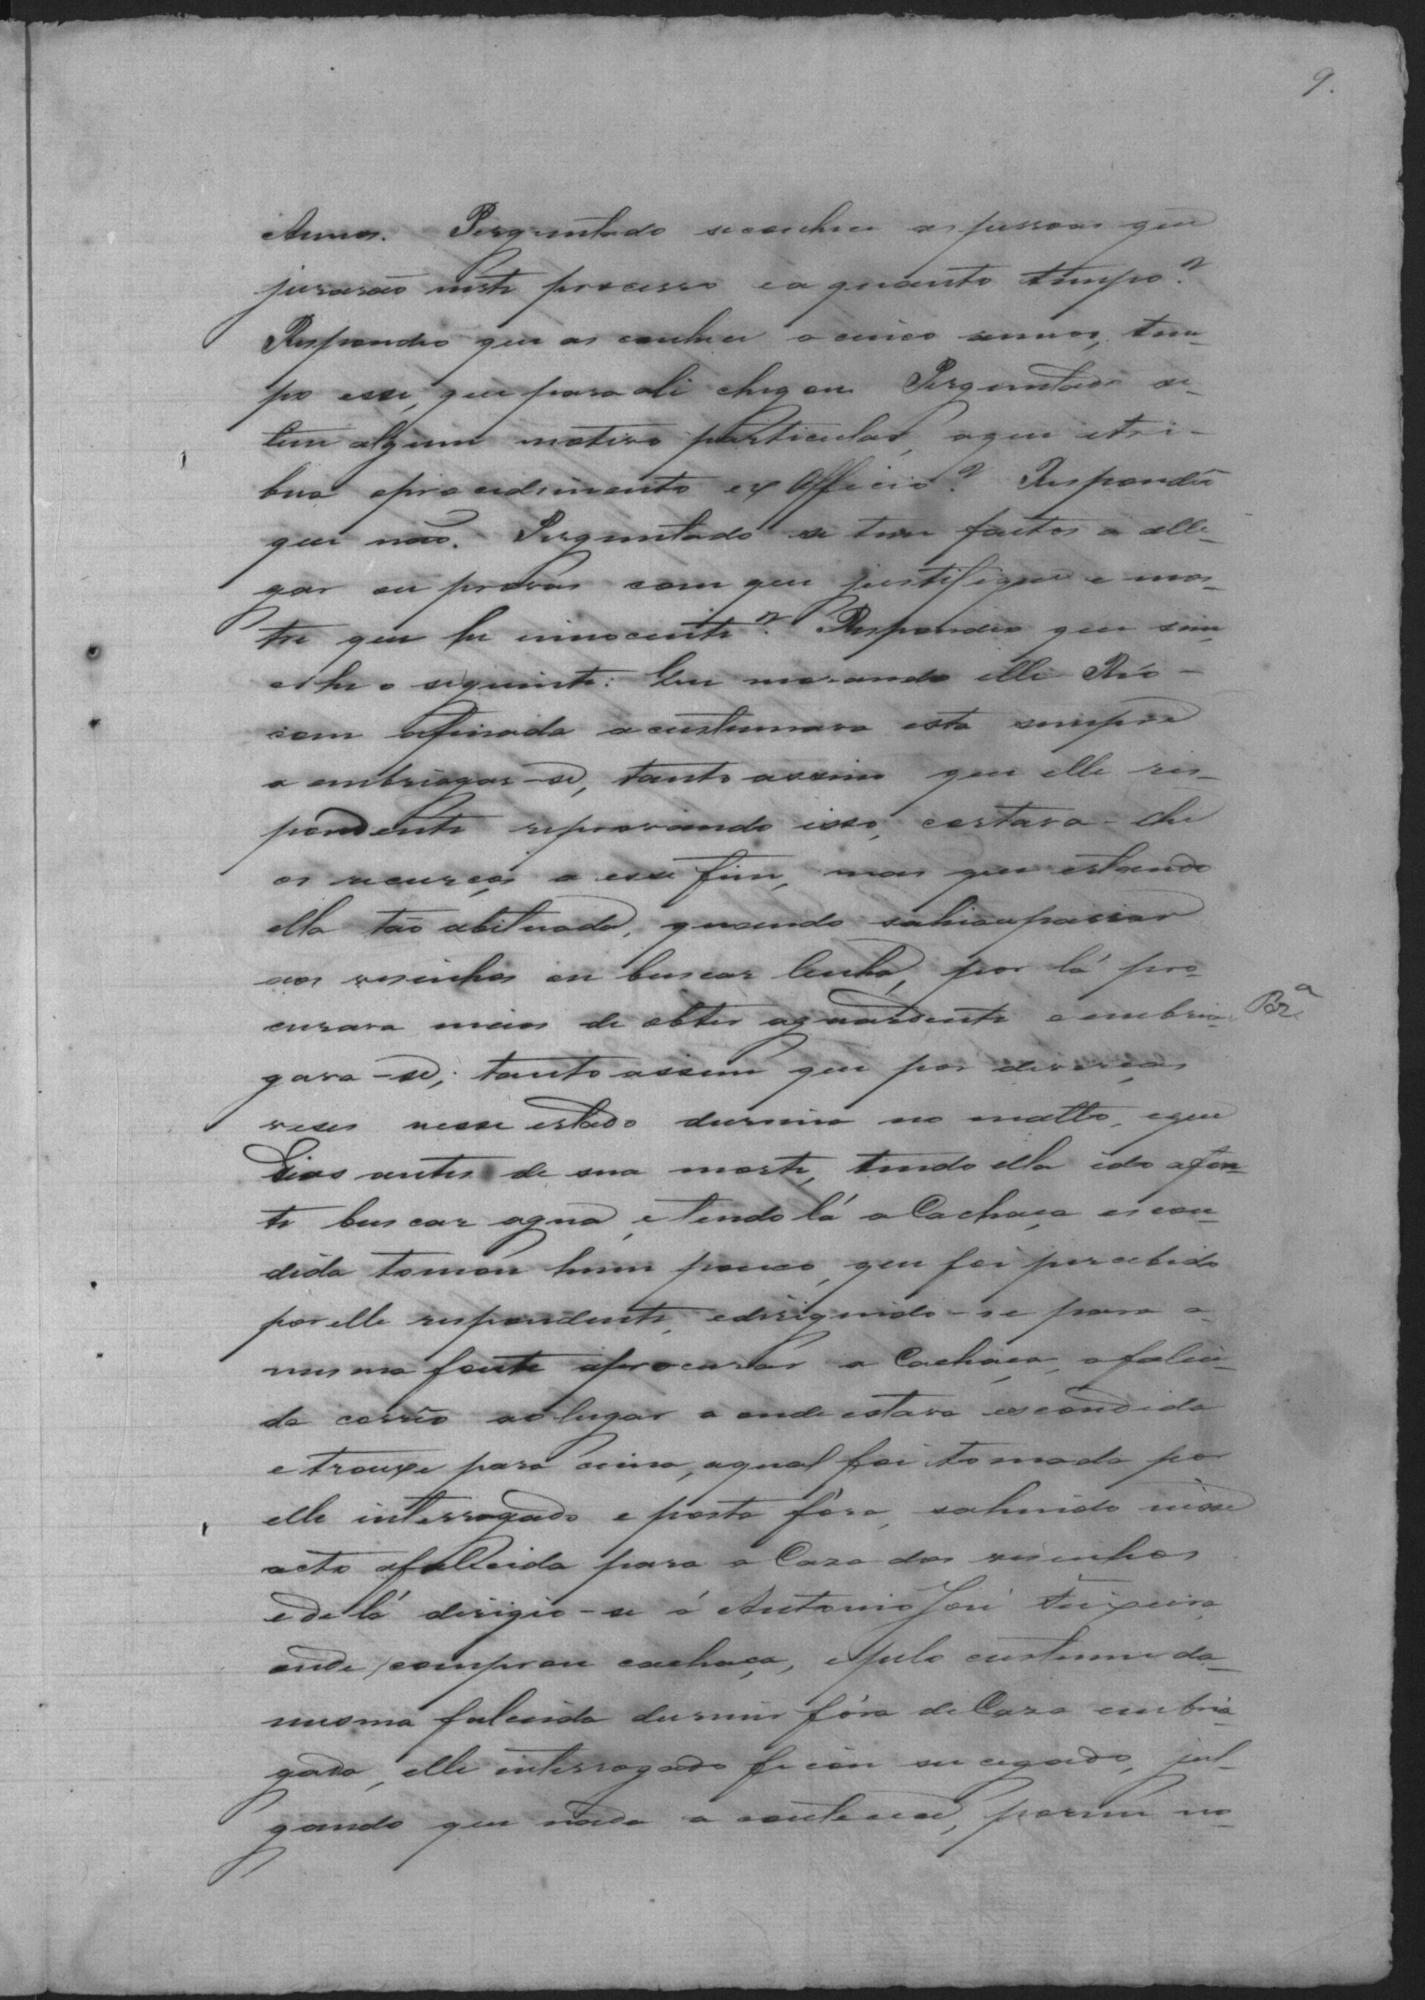 9.
Annos. Perguntado se conhece as pessoas que
jurarão neste processo e a quanto tempo?
Respondeo que as conhece a cinco annos, tem-
po esse, que para ali chegou. Perguntado se
tem algum motivo particular, a que atri-
bua o procedimento ex Officio? Respondeo
que não. Perguntado se tem factos a alle-
gar ou provas com que justifique e mos-
tre que he innocente? Respondeo que sim,
e he o seguinte: Que morando elle Réo
com a finada acustumava esta sempre
a embriagar-se, tanto assim que elle res-
pondente reprovando isso, cortava-lhe
os recurços a esse fim, mas que estando
ella tão abituada, quando sahia a passiar
aos visinhos ou buscar lenha, por lá pro-
curava meios de obter aguardente e embria-
Bz.ª
gava-se; tanto assim que por diverças
veses nesse estado durmio no matto, e que
Dias antes de sua morte, tendo ella ido a fon-
te buscar agua, e tendo lá a Cachaça escon-
dida tomou hum pouco, que foi percebido
por elle respondente, e dirigindo-se para a
mesma fonte a procurar a Cachaça, a faleci-
da corrio ao lugar a onde estava escondida
e trouxe para cima, a qual foi tomada por
elle interrogado e posta fóra, sahindo nesse
acto a falecida para a Caza dos visinhos
e de lá dirigio-se á Antonio José Teixeira,
onde comprou cachaça, e pelo custume da
mesma falecida durmir fóra de Caza embria-
gada, elle interrogado ficou sucegado, jul-
gando que nada acontecece, porem no